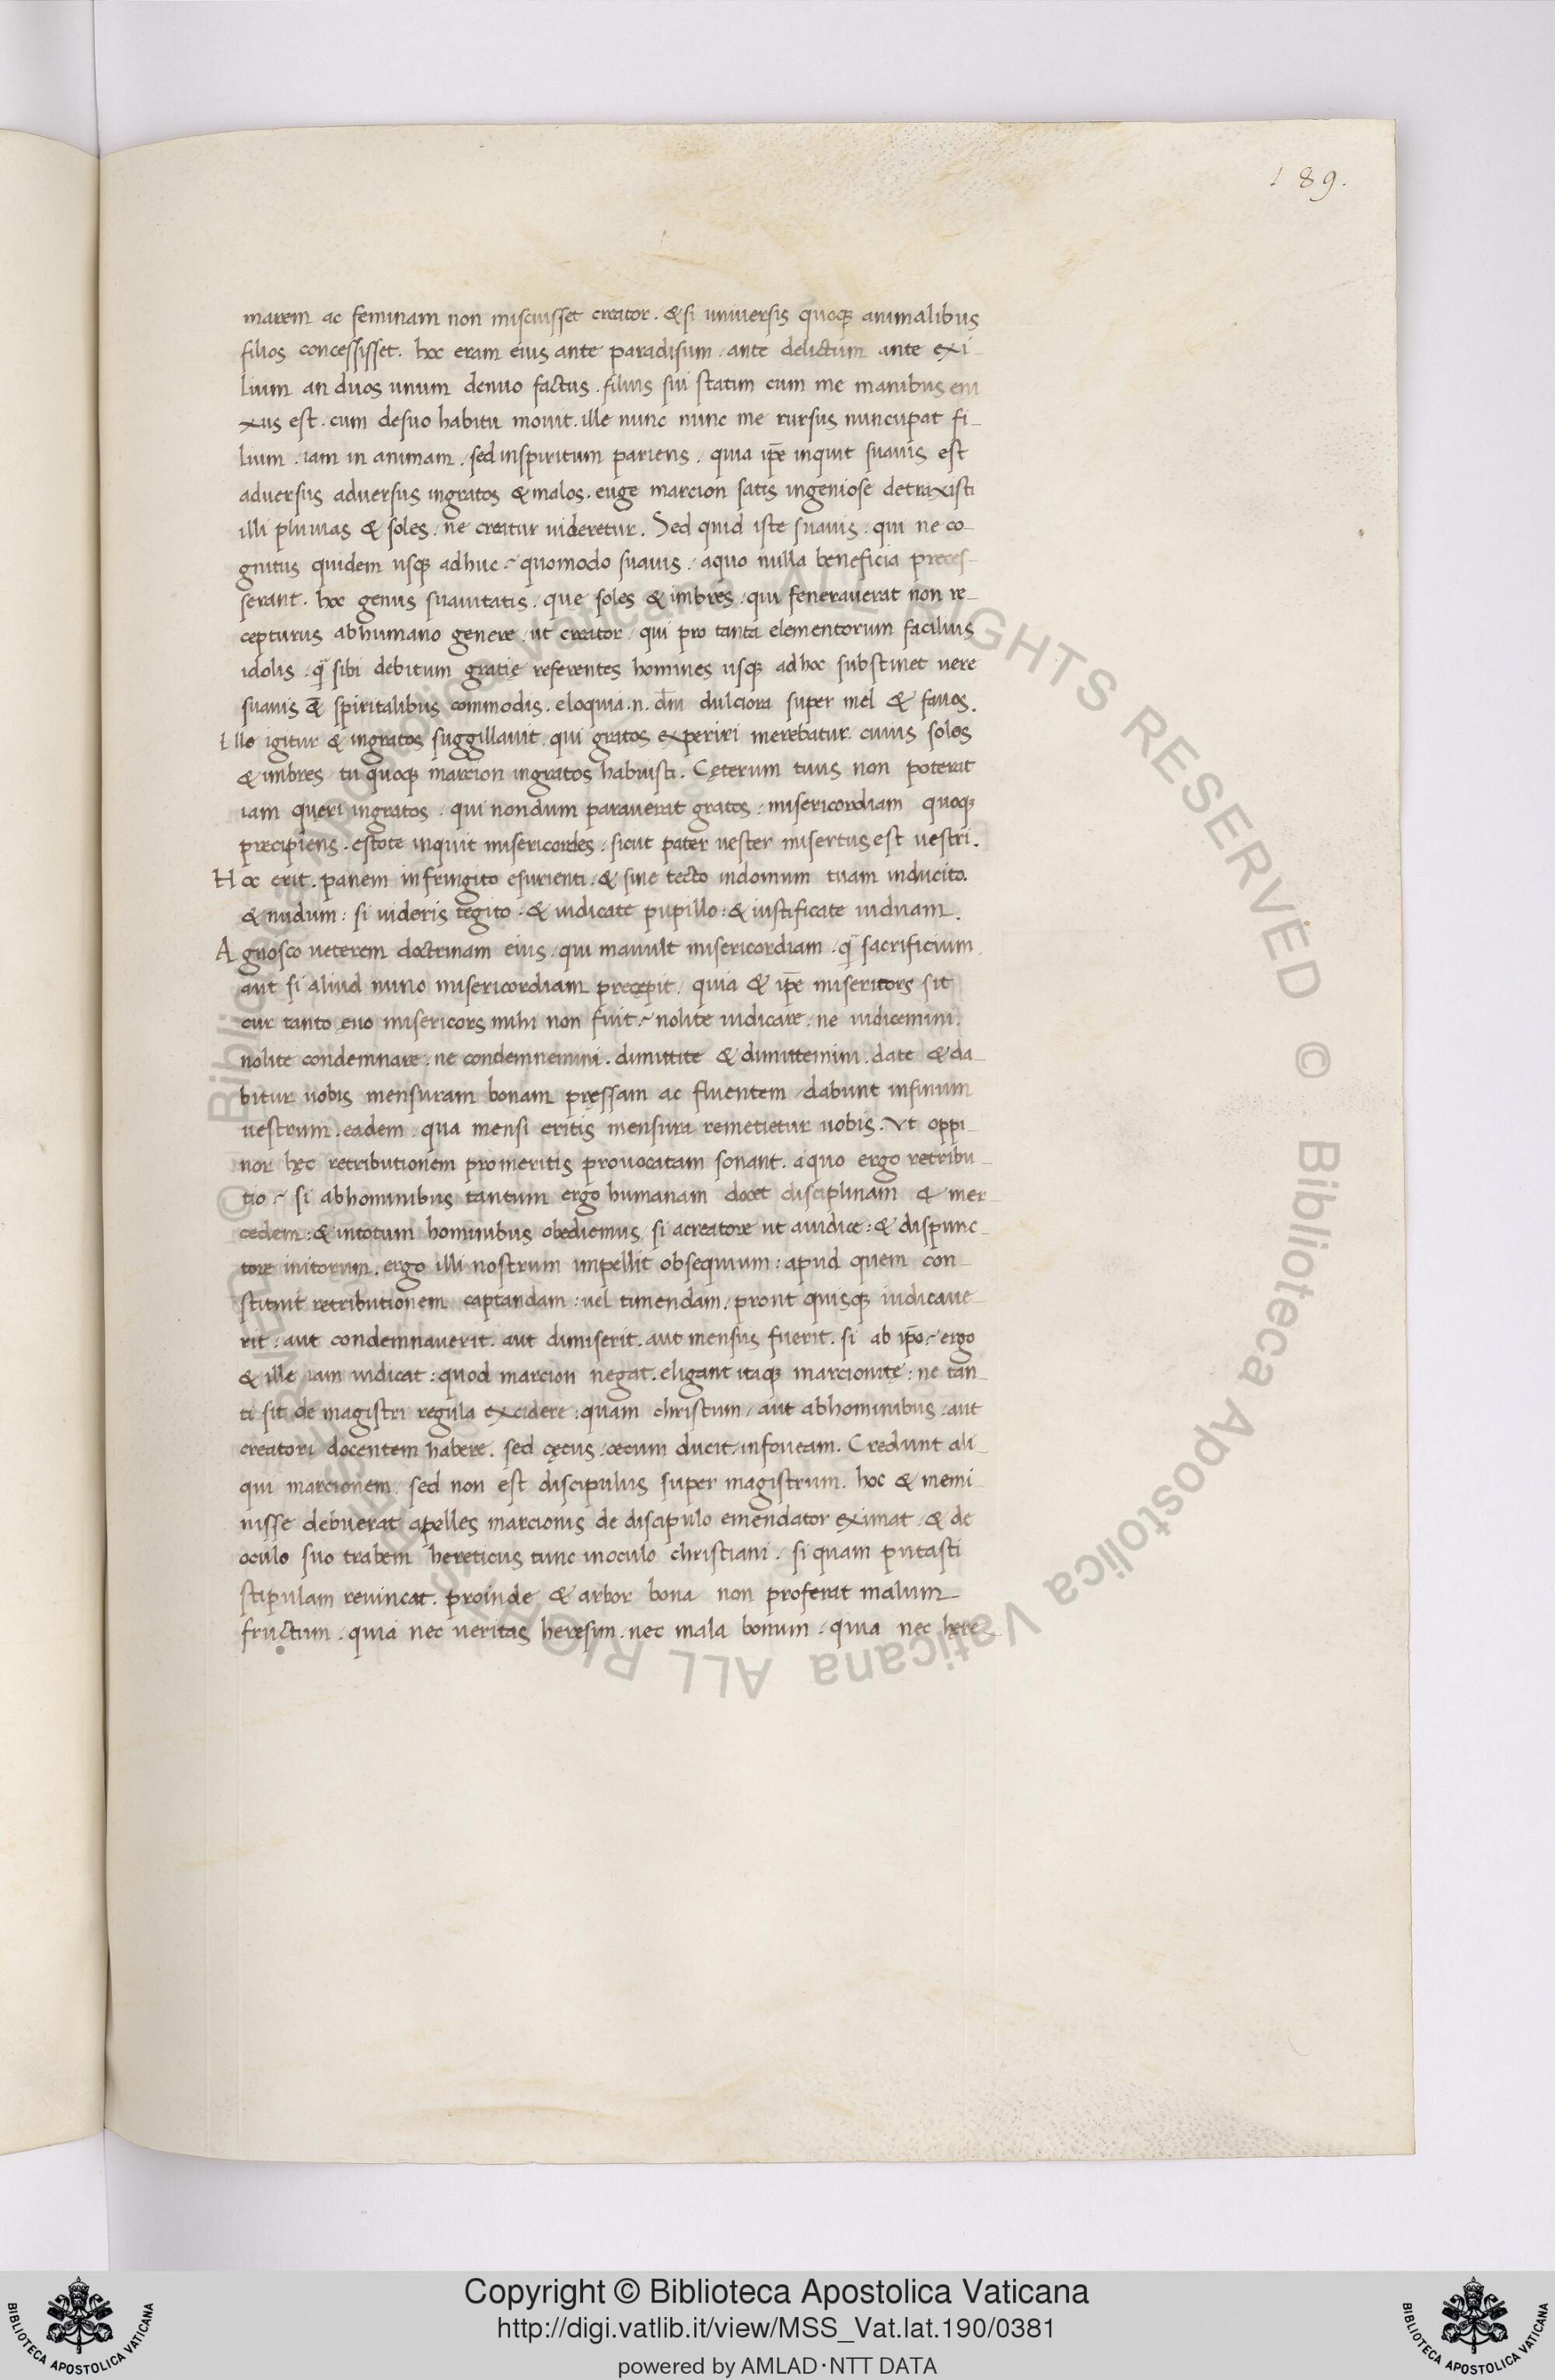 189.
marem ac feminam non miscuisset creator. & si universis quoq; animalibus
filios concessisset. hoc eram eius ante paradisum. ante delictum ante exi-
lium an duos unum denuo factus. filius sui statim cum me manibus eni
xus est. cum de suo habitu movit. ille nunc nunc me rursus nuncupat fi-
lium. iam in animam. sed inspiritum pariens. quia ip̄e inquit suavis est
adversus adversus ingratos & malos. euge marcion satis ingeniose detraxisti
illi pluvias & soles. ne creatur videretur. Sed quid iste suavis. qui ne co-
gnitus quidem usq; adhuc? quomodo suavis. aquo nulla beneficia preces-
serant. hoc genus suavitatis. que soles & imbres. qui feneraverat non re-
cepturus abhumano genere. ut creator. qui pro tanta elementorum facilius
idolis. q̄ sibi debitum gratię referentes homines usq; adhoc substinet vere
suavis & spiritalibus commodis. eloquia .n. dn̄i dulciora super mel & favos.
Ille igitur & ingratos suggillavit. qui gratos experiri merebatur. cuius soles
& imbres tu quoq; marcion ingratos habuisti. Cęterum tuus non poterat
iam queri ingratos. qui nondum paraverat gratos. misericordiam quoq;
precipiens. estote inquit misericordes. sicut pater vester misertus est vestri.
Hoc erit. panem infringito esurienti. & sine tecto indomum tuam inducito.
& nudum: si videris tegito: & iudicate pupillo: & iustificate viduam.
Agnosco veterem doctrinam eius. qui mavult misericordiam. q̄ sacrificium.
aut si aliud nunc misericordiam precępit. quia & ip̄e misericors sit
cur tanto evo misericors mihi non fuit? nolite iudicare. ne iudicemini.
nolite condemnare. ne condemnemini. dimittite & dimittemini. date & da
bitur vobis mensuram bonam pręssam ac fluentem dabunt insinum
vestrum. eadem. qua mensi eritis mensura remetietur vobis. Vt oppi-
nor hęc retributionem promeritis provocatam sonant. aquo ergo retribu-
tio? si abhominibus tantum ergo humanam docet disciplinam & mer-
cedem: & intotum hominibus obediemus. si acreatore ut a iudice: & dispunc-
tore initorum. ergo illi nostrum impellit obsequium: apud quem con-
stituit retributionem captandam: vel timendam. prout quisq; iudicave-
rit: aut condemnaverit. aut dimiserit. aut mensus fuerit. si ab ip̄o? ergo
& ille iam iudicat: quod marcion negat. eligant itaq; marcionitę: ne tan
ti sit de magistri regula excidere: quam christum. aut abhominibus: aut
creatori docentem habere. sed cęcus. cecum ducit. infoveam. Credunt ali-
qui marcionem. sed non est discipulus super magistrum. hoc & memi-
nisse debuerat apelles marcionis de discipulo emendator eximat. & de
oculo suo trabem hereticus tunc inoculo christiani. si quam putasti
stipulam revincat. proinde & arbor bona non proferat malum
fructum. quia nec veritas heresim. nec mala bonum. quia nec hęre-
Copyright © Biblioteca Apostolica Vaticana
http://digi.vatlib.it/view/MSS_Vat.lat.190/0381
powered by AMLAD·NTT DATA